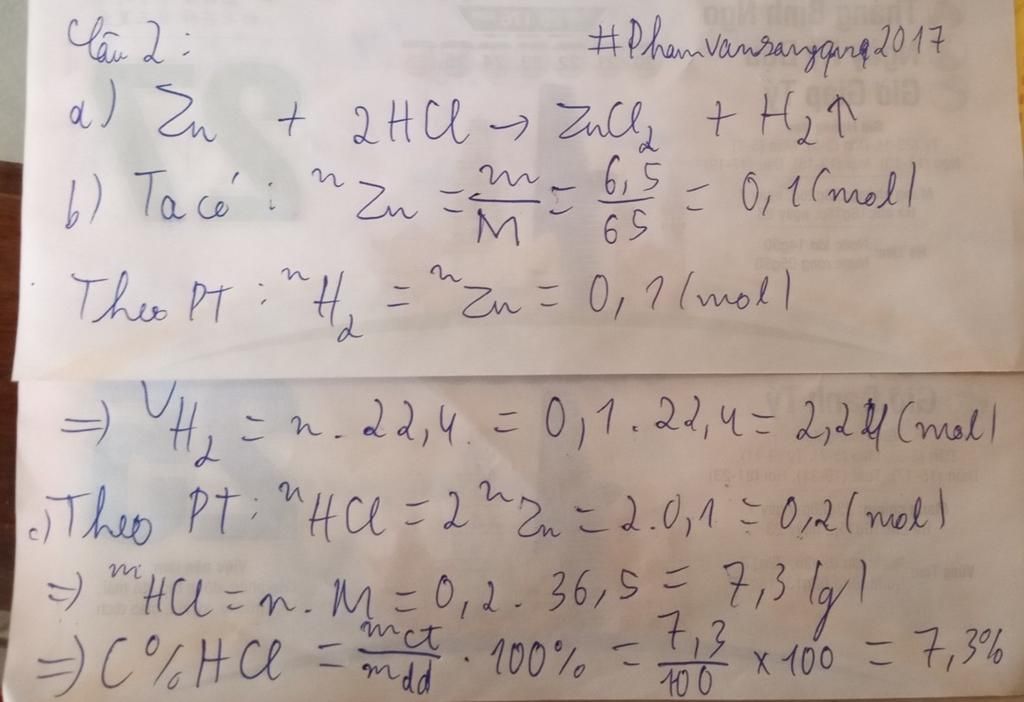 Câu 2: #Phamvansangqng2017
a) Zn + 2HCl → ZnCl₂ + H₂↑
b) Ta có: nZn = m/M = 6,5/65 = 0,1 (mol)
Theo PT: nH₂ = nZn = 0,1 (mol)
=> VH₂ = n.22,4 = 0,1.22,4 = 2,24 (mol)
c) Theo PT: nHCl = 2nZn = 2.0,1 = 0,2 (mol)
=> mHCl = n.M = 0,2.36,5 = 7,3 (g)
=> C%HCl = mct/mdd . 100% = 7,3/100 x 100 = 7,3%